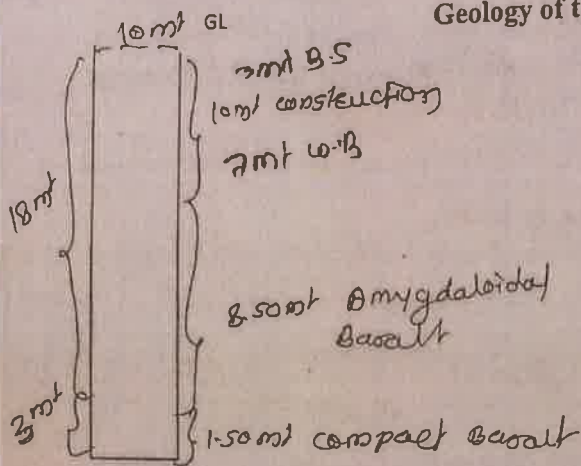 Geology of t
10mt GL
3mt B.S
10mt construction
7mt W.B
18mt
8.50mt Amygdaloidal
Basalt
3mt
1.50mt compact Basalt